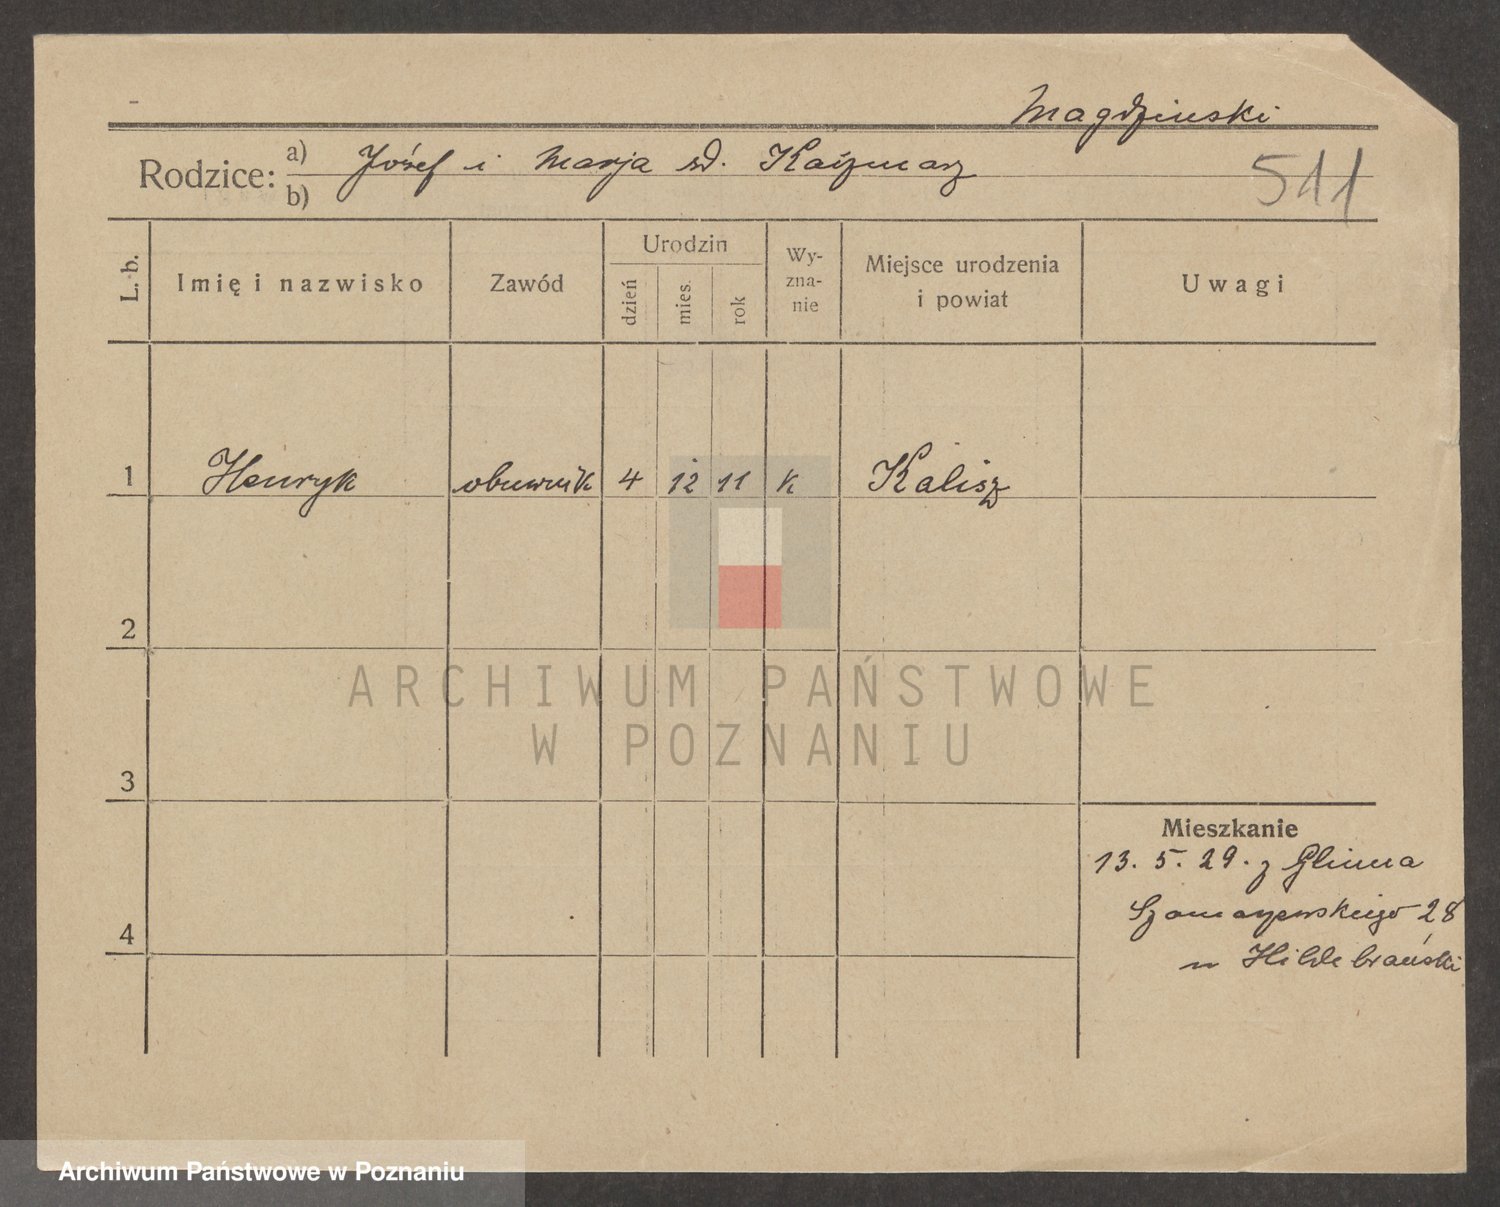 Magdzinski
Rodzice: a) Józef i Marja zd. Kaźmarz
b)
511
L. b.
Imię i nazwisko
Zawód
Urodzin
dzień
mies.
rok
Wy-
zna-
nie
Miejsce urodzenia
i powiat
Uwagi
1 Henryk obuwnik 4 12 11 k Kalisz
2
ARCHIWUM PAŃSTWOWE
W POZNANIU
3
Mieszkanie
13. 5. 29. z Glinna
Szamarzewskiego 28
4
u Hildebrański
Archiwum Państwowe w Poznaniu